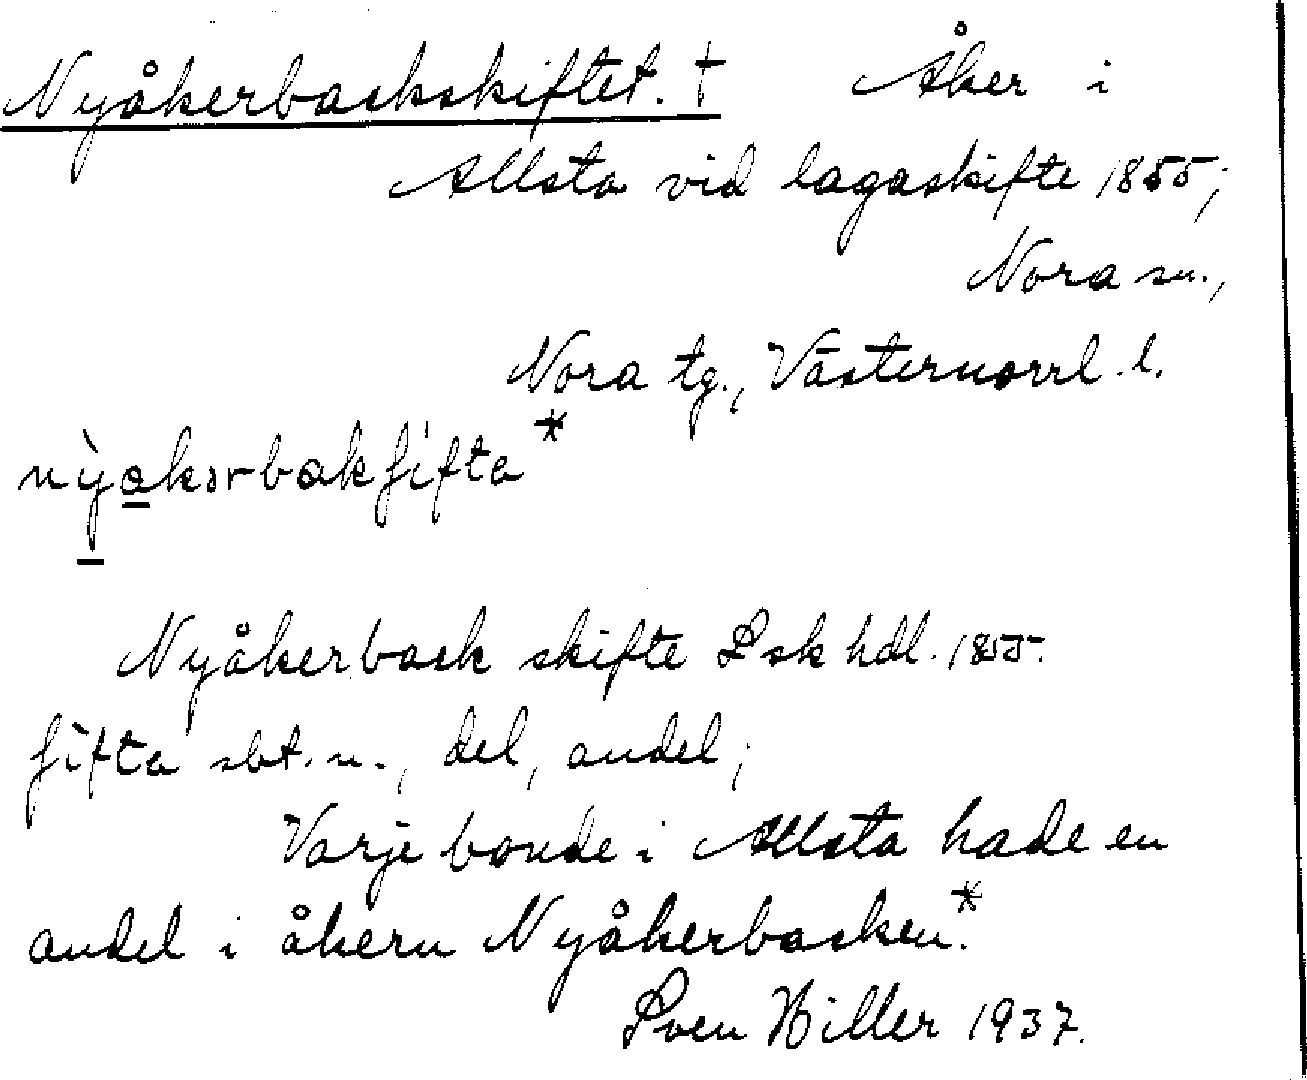 Nyåkerbackskiftet. † Åker i
Allsta vid lagaskifte 1855;
Nora sn.,
Nora tg., Västernorrl. l.
nỳakərbakʃifta*
Nyåkerback skifte Lsk hdl. 1855.
ʃifta sbt. n., del, andel;
Varje bonde i Allsta hade en
andel i åkern Nyåkerbacken.*
Sven Hiller 1937.